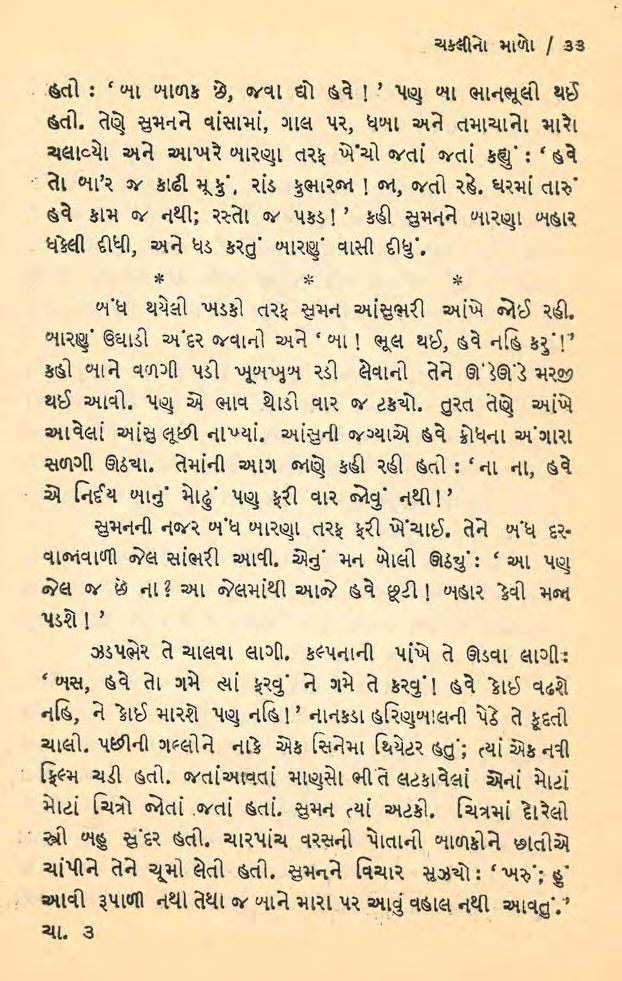 ચકલીનો માળો / ૩૩
હતી : ‘બા બાળક છે, જવા દ્યો હવે !’ પણ બા ભાનભૂલી થઈ
હતી. તેણે સુમનને વાંસામાં, ગાલ પર, ધબા અને તમાચાનો મારો
ચલાવ્યો અને આખરે બારણા તરફ ખેંચી જતાં જતાં કહ્યું : ‘હવે
તો બા’ર જ કાઢી મૂકું, રાંડ કુભારજા ! જા, જતી રહે. ઘરમાં તારું
હવે કામ જ નથી; રસ્તો જ પકડ !’ કહી સુમનને બારણા બહાર
ધકેલી દીધી, અને ધડ કરતું બારણું વાસી દીધું.
* * *
બંધ થયેલી ખડકી તરફ સુમન આંસુભરી આંખે જોઈ રહી.
બારણું ઉઘાડી અંદર જવાની અને ‘બા ! ભૂલ થઈ, હવે નહિ કરું !’
કહી બાને વળગી પડી ખૂબખૂબ રડી લેવાની તેને ઊંડેઊંડે મરજી
થઈ આવી. પણ એ ભાવ થોડી વાર જ ટકયો. તુરત તેણે આંખે
આવેલાં આંસુ લૂછી નાખ્યાં. આંસુની જગ્યાએ હવે ક્રોધના અંગારા
સળગી ઊઠયા. તેમાંની આગ જાણે કહી રહી હતી : ‘ના ના, હવે
એ નિર્દય બાનું મોઢું પણ ફરી વાર જોવું નથી !’
સુમનની નજર બંધ બારણા તરફ ફરી ખેંચાઈ. તેને બંધ દર-
વાજાવાળી જેલ સાંભરી આવી. એનું મન બોલી ઊઠયું : ‘આ પણ
જેલ જ છે ના ? આ જેલમાંથી આજે હવે છૂટી ! બહાર કેવી મજા
પડશે !’
ઝડપભેર તે ચાલવા લાગી. કલ્પનાની પાંખે તે ઊડવા લાગી :
‘બસ, હવે તો ગમે ત્યાં ફરવું ને ગમે તે કરવું ! હવે કોઈ વઢશે
નહિ, ને કોઈ મારશે પણ નહિ !’ નાનકડા હરિણબાલની પેઠે તે કૂદતી
ચાલી. પછીની ગલ્લીને નાકે એક સિનેમા થિયેટર હતું; ત્યાં એક નવી
ફિલ્મ ચડી હતી. જતાંઆવતાં માણસો ભીંતે લટકાવેલાં એનાં મોટાં
મોટાં ચિત્રો જોતાં જતાં હતાં. સુમન ત્યાં અટકી. ચિત્રમાં દોરેલી
સ્ત્રી બહુ સુંદર હતી. ચારપાંચ વરસની પોતાની બાળકીને છાતીએ
ચાંપીને તેને ચૂમી લેતી હતી. સુમનને વિચાર સૂઝયો : ‘ખરું; હું
આવી રૂપાળી નથી તેથી જ બાને મારા પર આવું વહાલ નથી આવતું.’
ચા. ૩